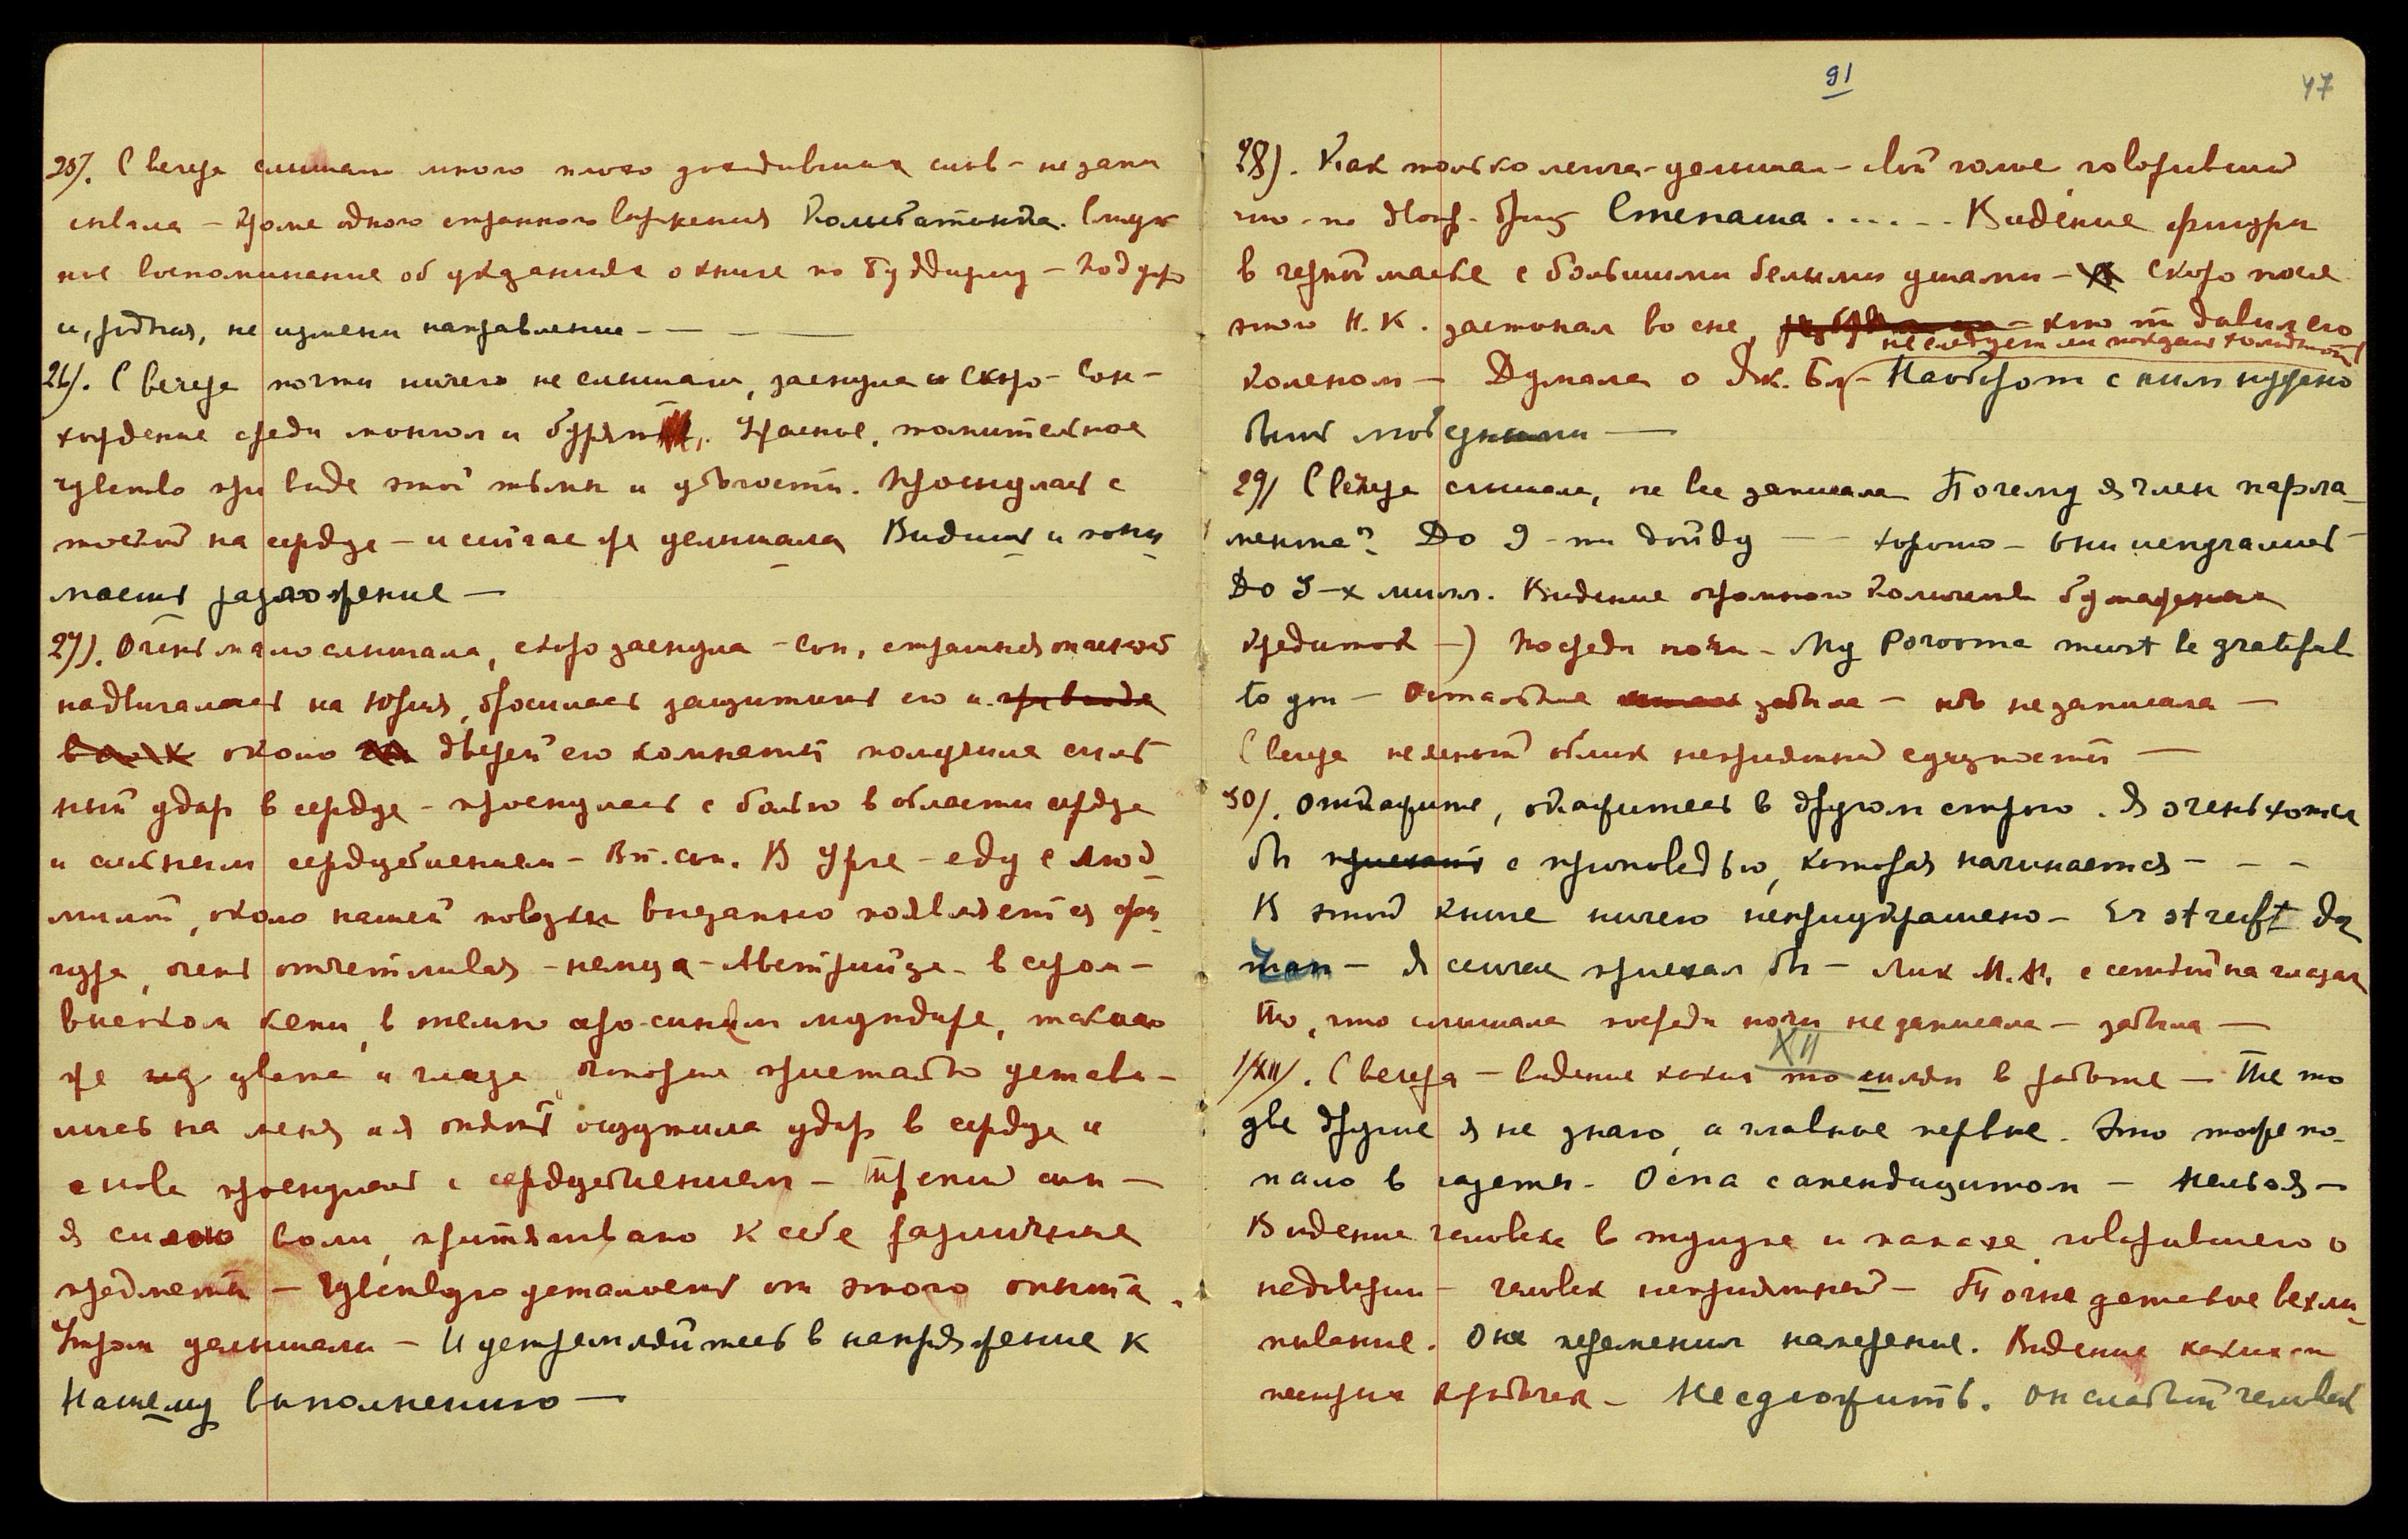 25/. С вечера слышала много плохо доходивших слов – не запи
сывала – кроме одного странного выражения
ное воспоминание об указаниях о книге по Буддизму –
и, родная, не измени направление – — – —
26/. С вечера почти ничего не слышала, заснула и скоро – Сон –
хождение среди монгол и бурят. Ужасное, томительное
чувство при виде этой тьмы и убогости. Проснулась с
тоской на сердце – и сейчас же услышала Видишь и пони
маешь разложение —
27). Очень мало слышала, скоро заснула – Сон, страшная опасность
надвигалась на Юрия, бросилась защитить его и
около дверей его комнаты получила силь
ный удар в сердце – проснулась с болью в области сердца
и сильным сердцебиением – Вт. сон. В Урге – еду с Люд
милой, около нашей повозки внезапно появляется фи
гура, очень отчетливая – немца – Австрийца – в сером –
высоком кепи, в темно серо-синем мундире, такого
же цвета и глаза, которые пристально устави –
лись на меня и я опять ощутила удар в сердце и
снова проснулась с сердцебиением – Третий сон —
Я силою воли, притягиваю к себе различные
предметы – Чувствую усталость от этого опыта.
Утром услышала – И устремляйтесь в напряжение к
Нашему выполнению —
91
47
28). Как только легла – услышал – голос говоривший
что-то Степаша . . . . – – Видение фигуры
в черной маске с большими белыми ушами – Скоро после
этого Н. К. застонал во сне, – кто то давил его
не следует ли
коленом – Думала о Дж. Бр – Наоборот с ним нужно
быть —
29/ С вечера слышала, не все записала Почему я член парла_
мента? До 9-ти дойду – – хорошо – они испугались –
До 3-х милл. Видение огромного количества бумажных
кредиток –) Посреди ночи – My Poroona must be grateful
to you – Остальное забыла – ибо не записала —
С вечера неясный облик неприятной сущности —
30/. Откажите, окажитесь в другом строю. Я очень хотел
бы с проповедью, которая начинается – – –
В этой книге ничего неприукрашено – Er streift da
– Я сейчас приехал бы – Лик М. М. с на глазах
То, что слышала посреди ночи не записала – забыла —
XII
1/XII/. С вечера – видение каких то в работе — Те то
две другие я не знаю, а главное первые. Это тоже по_
пало в газеты. Оспа с апендицитом – Нельзя –
Видение человека в тулупе и папахе, говорившего о
недоверии – человек неприятный – Точно детское всхли_
пывание. Она переменил намерение. Видение каких-то
пестрых – Не сдюжить. Он слабый человек